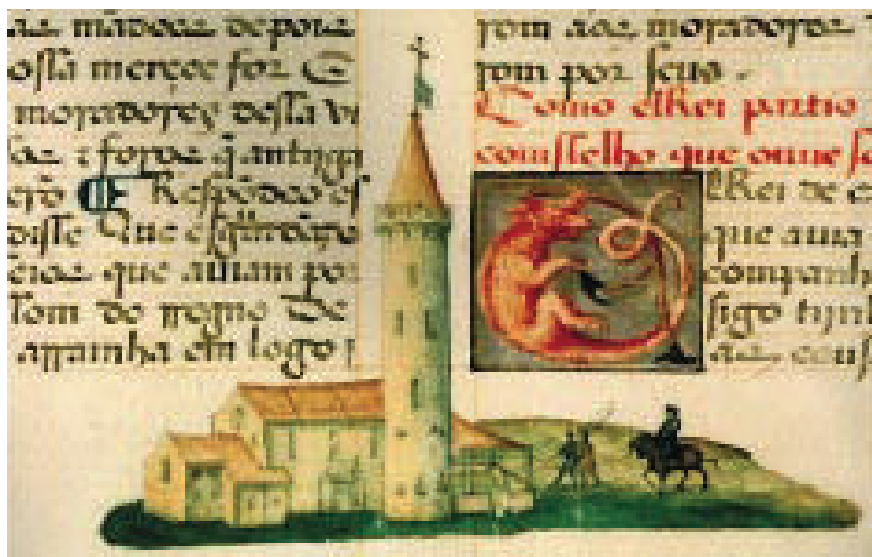 depois
ossa merçee for
moradores dessa vi
foros q̃ antiiga
Respõdeo es
disse Que
que auiam por
rregno De
a rrainha em logo
rom aos moradores
rom por seus
Como elRei partio
consselho que ouue so
lRei de c
que auia
companh
sigo tijnh
as cous